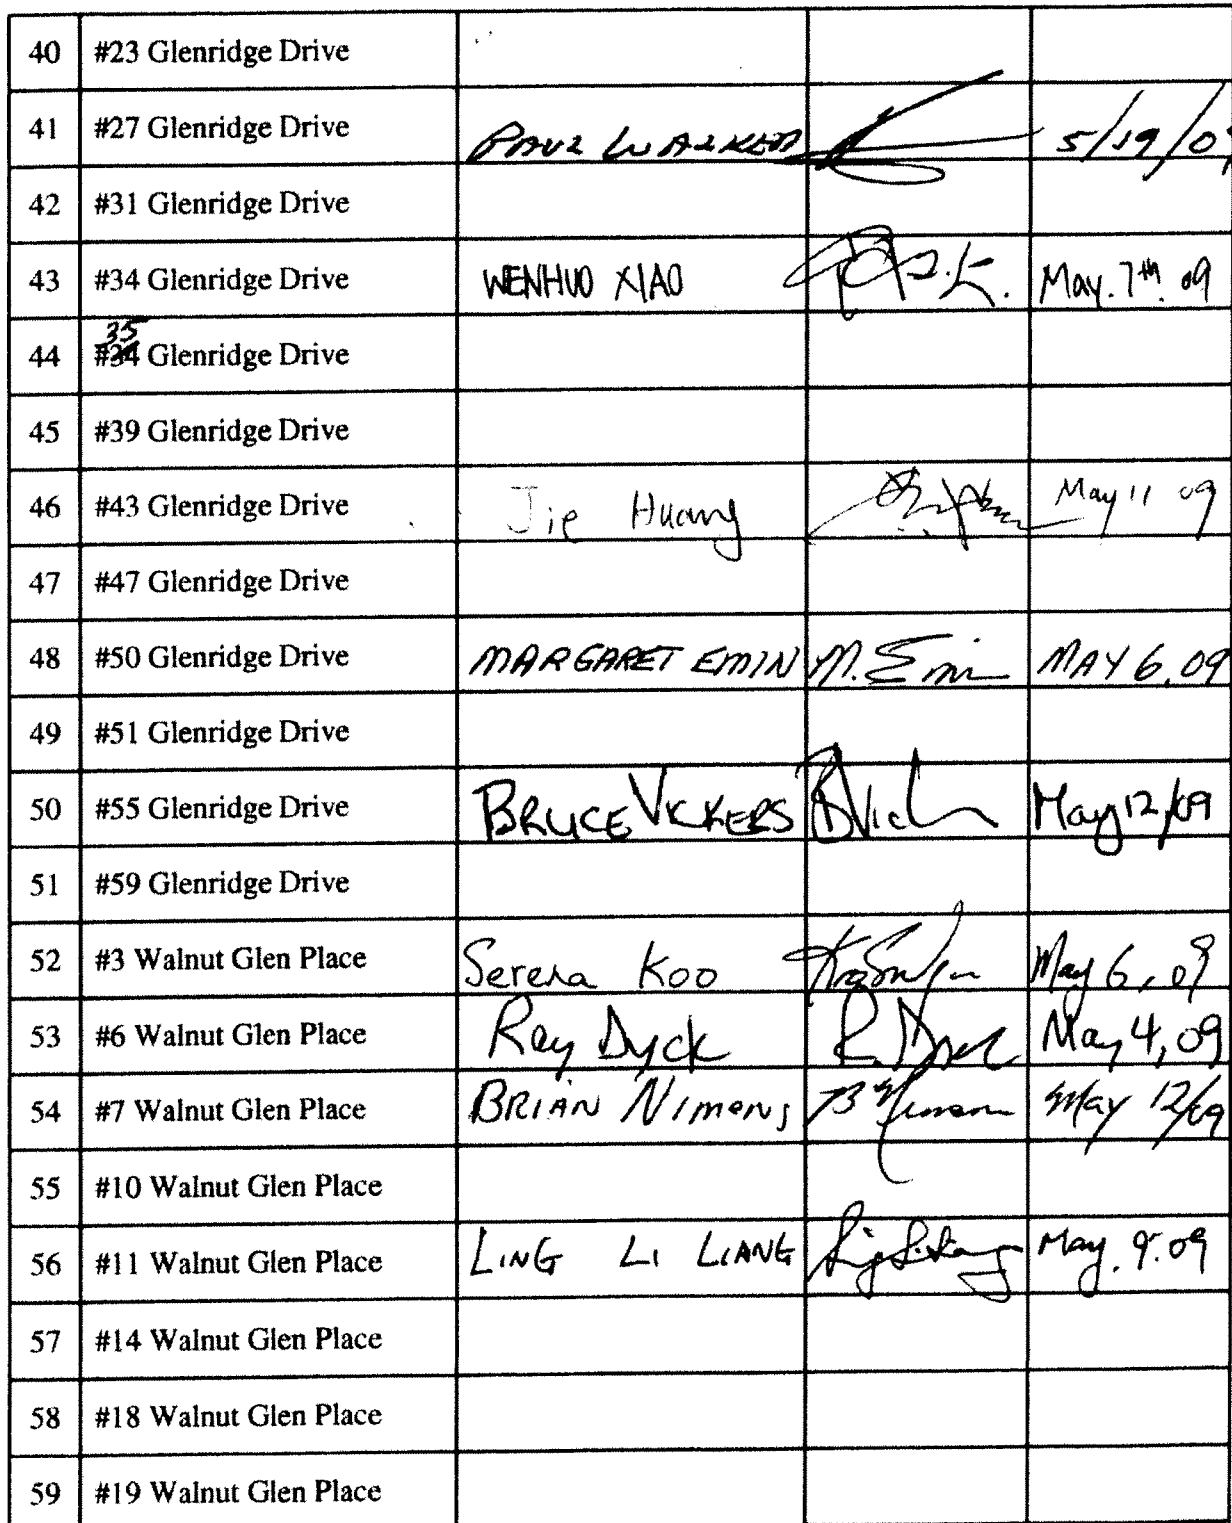 40 #23 Glenridge Drive
41 #27 Glenridge Drive PAUL WALKER 5/19/09
42 #31 Glenridge Drive
43 #34 Glenridge Drive WENHUO XIAO May. 7th. 09
35
44 #34 Glenridge Drive
45 #39 Glenridge Drive
46 #43 Glenridge Drive Jie Huang May 11 09
47 #47 Glenridge Drive
48 #50 Glenridge Drive MARGARET EMIN M. Emin MAY 6, 09
49 #51 Glenridge Drive
50 #55 Glenridge Drive BRUCE VICKERS May 12/09
51 #59 Glenridge Drive
52 #3 Walnut Glen Place Serena Koo May 6, 09
53 #6 Walnut Glen Place Ray Dyck R. Dyck May 4, 09
54 #7 Walnut Glen Place BRIAN Nimens May 12/09
55 #10 Walnut Glen Place
56 #11 Walnut Glen Place LING LI LIANG May. 9. 09
57 #14 Walnut Glen Place
58 #18 Walnut Glen Place
59 #19 Walnut Glen Place